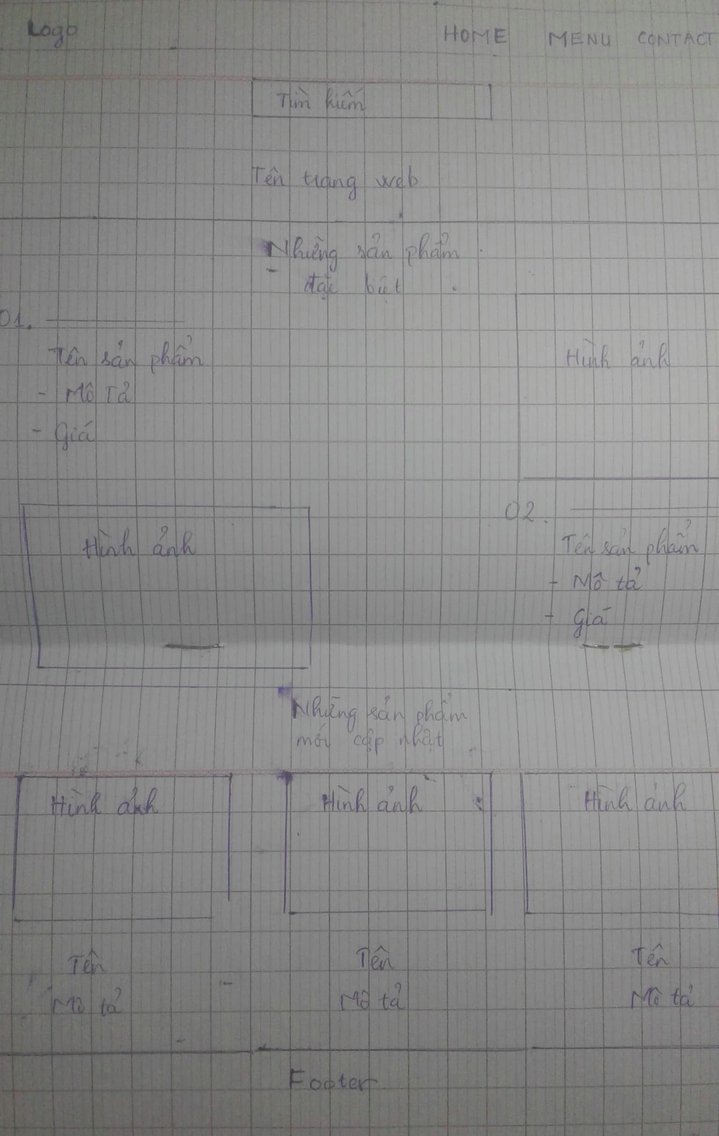 Logo HOME MENU CONTACT
Tìm kiếm
Tên trang web
Những sản phẩm
đặc biệt
01.
Tên sản phẩm
- Mô Tả
- Giá
Hình ảnh
Hình ảnh
02.
Tên sản phẩm
- Mô tả
- Giá
Những sản phẩm
mới cập nhật
Hình ảnh Hình ảnh Hình ảnh
Tên Tên Tên
Mô tả Mô tả Mô tả
Footer